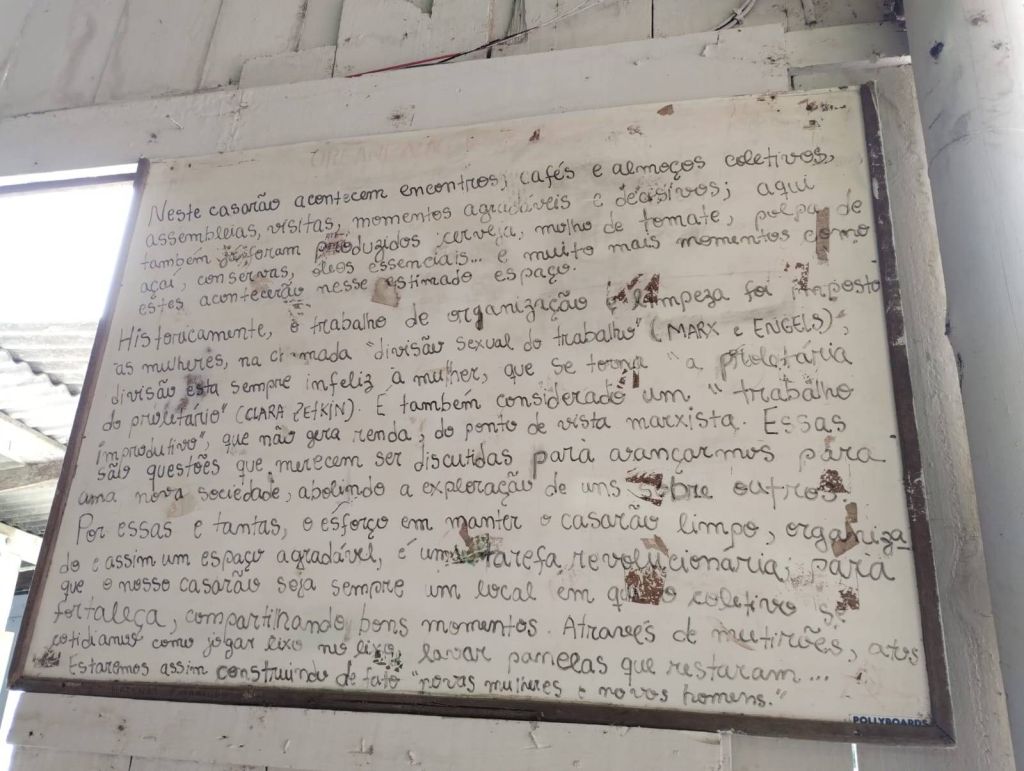 Neste casarão acontecem encontros, cafés e almoços coletivos,
assembleias, visitas, momentos agradáveis e decisivos; aqui
também já foram produzidos cerveja, molho de tomate, polpa de
açaí, conservas, óleos essenciais... e muito mais momentos como
estes acontecerão nesse estimado espaço.
Historicamente, o trabalho de organização e limpeza foi imposto
as mulheres, na chamada "divisão sexual do trabalho" (MARX e ENGELS),
divisão esta sempre infeliz à mulher, que se torna "a proletária
do proletário" (CLARA ZETKIN). É também considerado um "trabalho
improdutivo", que não gera renda, do ponto de vista marxista. Essas
são questões que merecem ser discutidas para avançarmos para
uma nova sociedade, abolindo a exploração de uns sobre outros.
Por essas e tantas, o esforço em manter o casarão limpo, organiza
do e assim um espaço agradável, é uma tarefa revolucionária; para
que o nosso casarão seja sempre um local em que o coletivo se
fortaleça, compartilhando bons momentos. Através de mutirões, atos
cotidianos como jogar lixo no lixo, lavar panelas que restaram...
Estaremos assim construindo de fato "novas mulheres e novos homens."
POLLYBOARDS